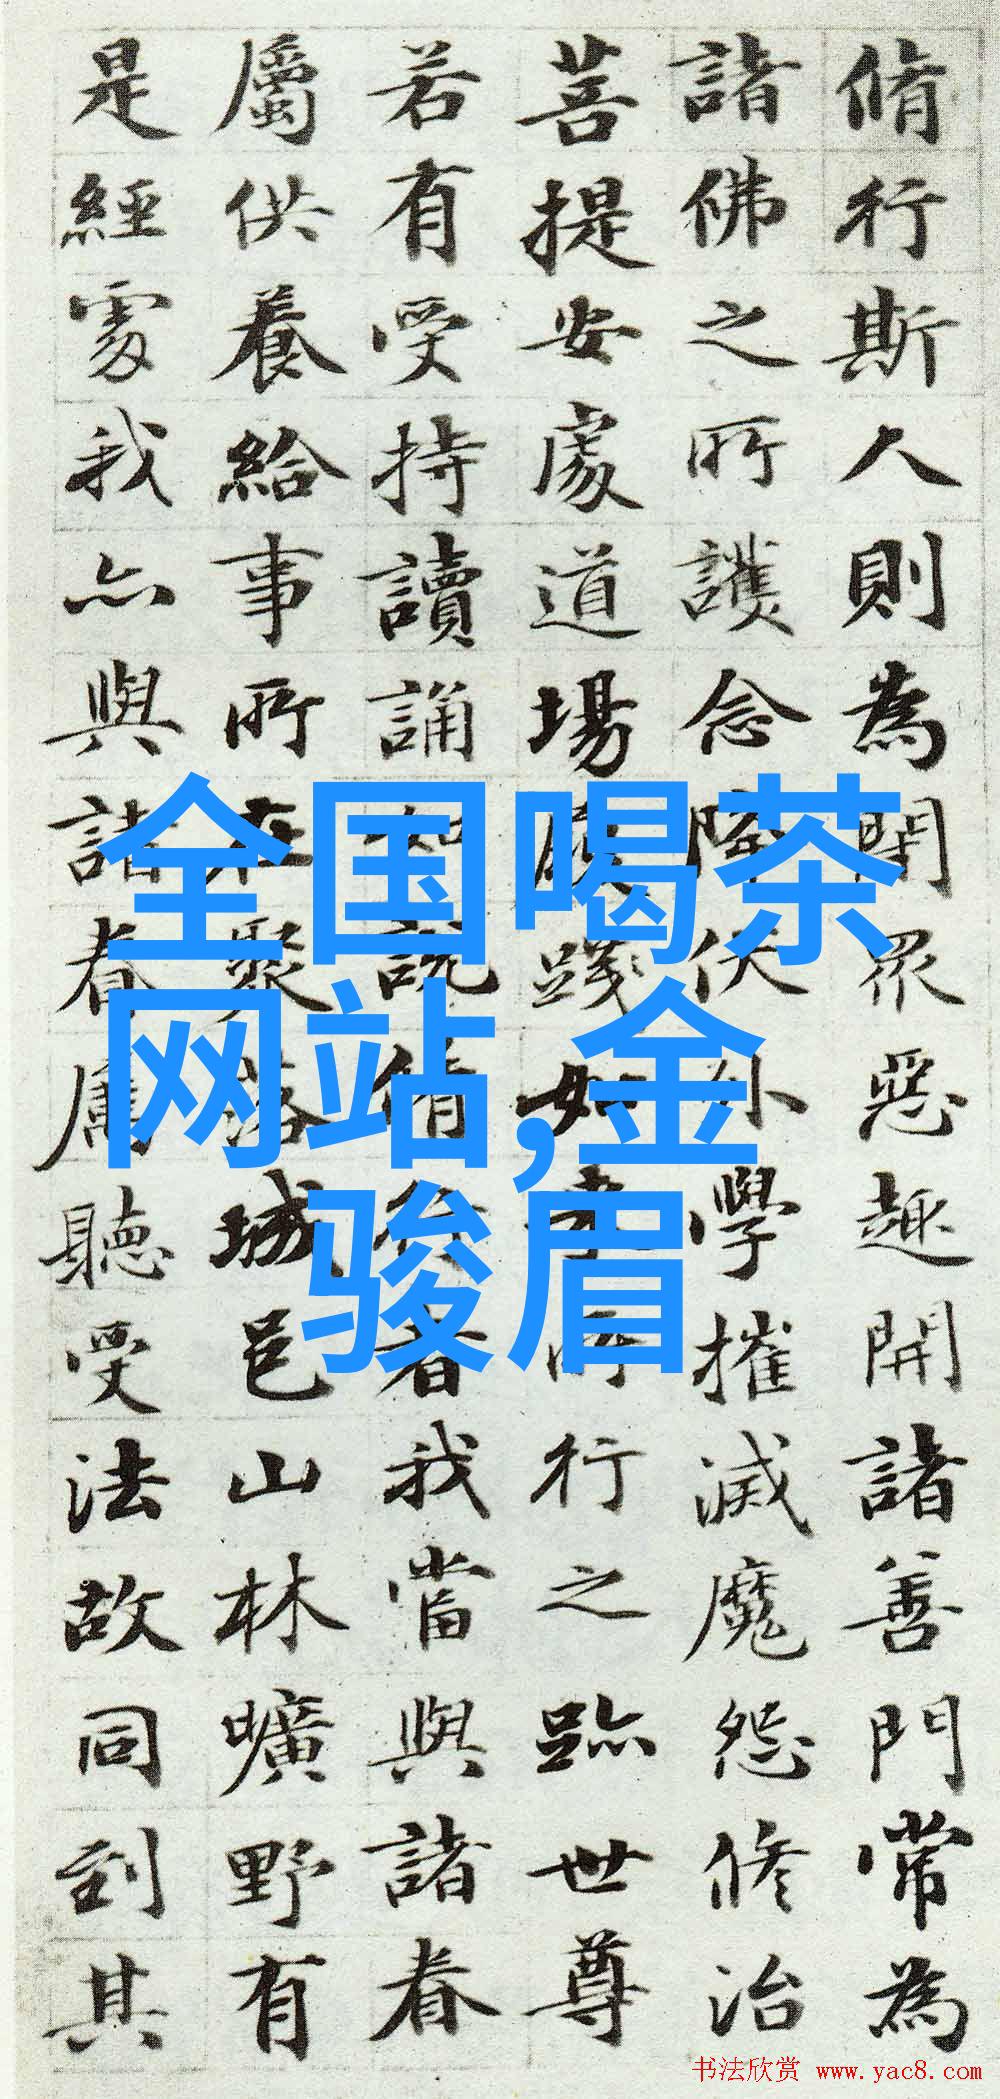 脩行斯人則為閉眾惡趣開諸善門常為
諸佛之所護念降伏外學摧滅魔怨修治
菩提安處道場履踐如來所行之跡世尊
若有受持讀誦如說脩行者我當與諸眷
屬供養給事所在聚落城邑山林曠野有
是經處我亦與諸眷屬聽受法故同到其
全国喝茶
网站,金
骏眉
书法欣赏 www.yac8.com